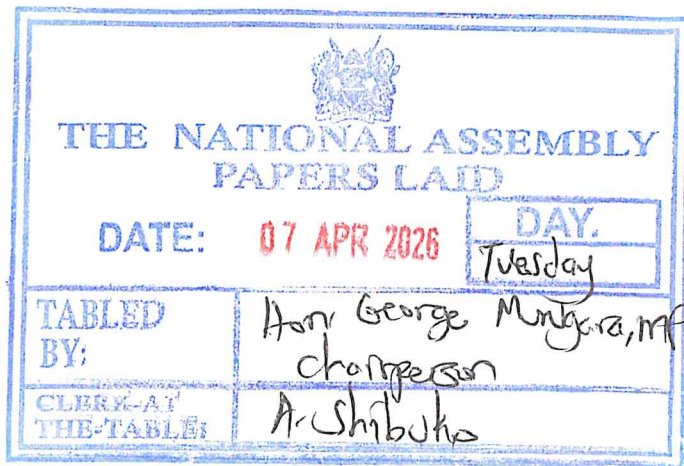 THE NATIONAL ASSEMBLY
PAPERS LAID
DATE: 07 APR 2026
DAY.
Tuesday
TABLED BY:
Hon. George Murugara, MP
Chairperson
CLERK-AT THE-TABLE:
A. Shibuko